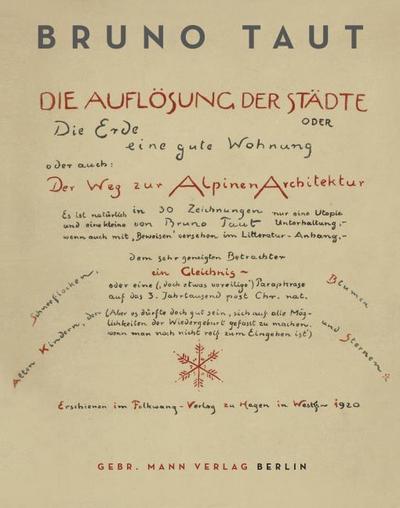 BRUNO TAUT
DIE AUFLÖSUNG DER STÄDTE
ODER
Die Erde
eine gute Wohnung
oder auch:
Der Weg zur Alpinen Architektur
Es ist natürlich in 30 Zeichnungen nur eine Utopie
und eine kleine von Bruno Taut Unterhaltung,-
wenn auch mit „Beweisen" versehen im Litteratur-Anhang.-
dem sehr geneigten Betrachter
ein Gleichnis~
oder eine (,doch etwas voreilige') Paraphrase
auf das 3. Jahrtausend post Chr. nat.
(Aber es dürfte doch gut sein, sich auf alle Mög-
lichkeiten der Wiedergeburt gefasst zu machen,
wenn man noch nicht reif zum Eingehen ist)
Allen Kindern, der Schneeflocken,
Blumen und Sternen
Erschienen im Folkwang-Verlag zu Hagen in Westf~ 1920
GEBR. MANN VERLAG BERLIN